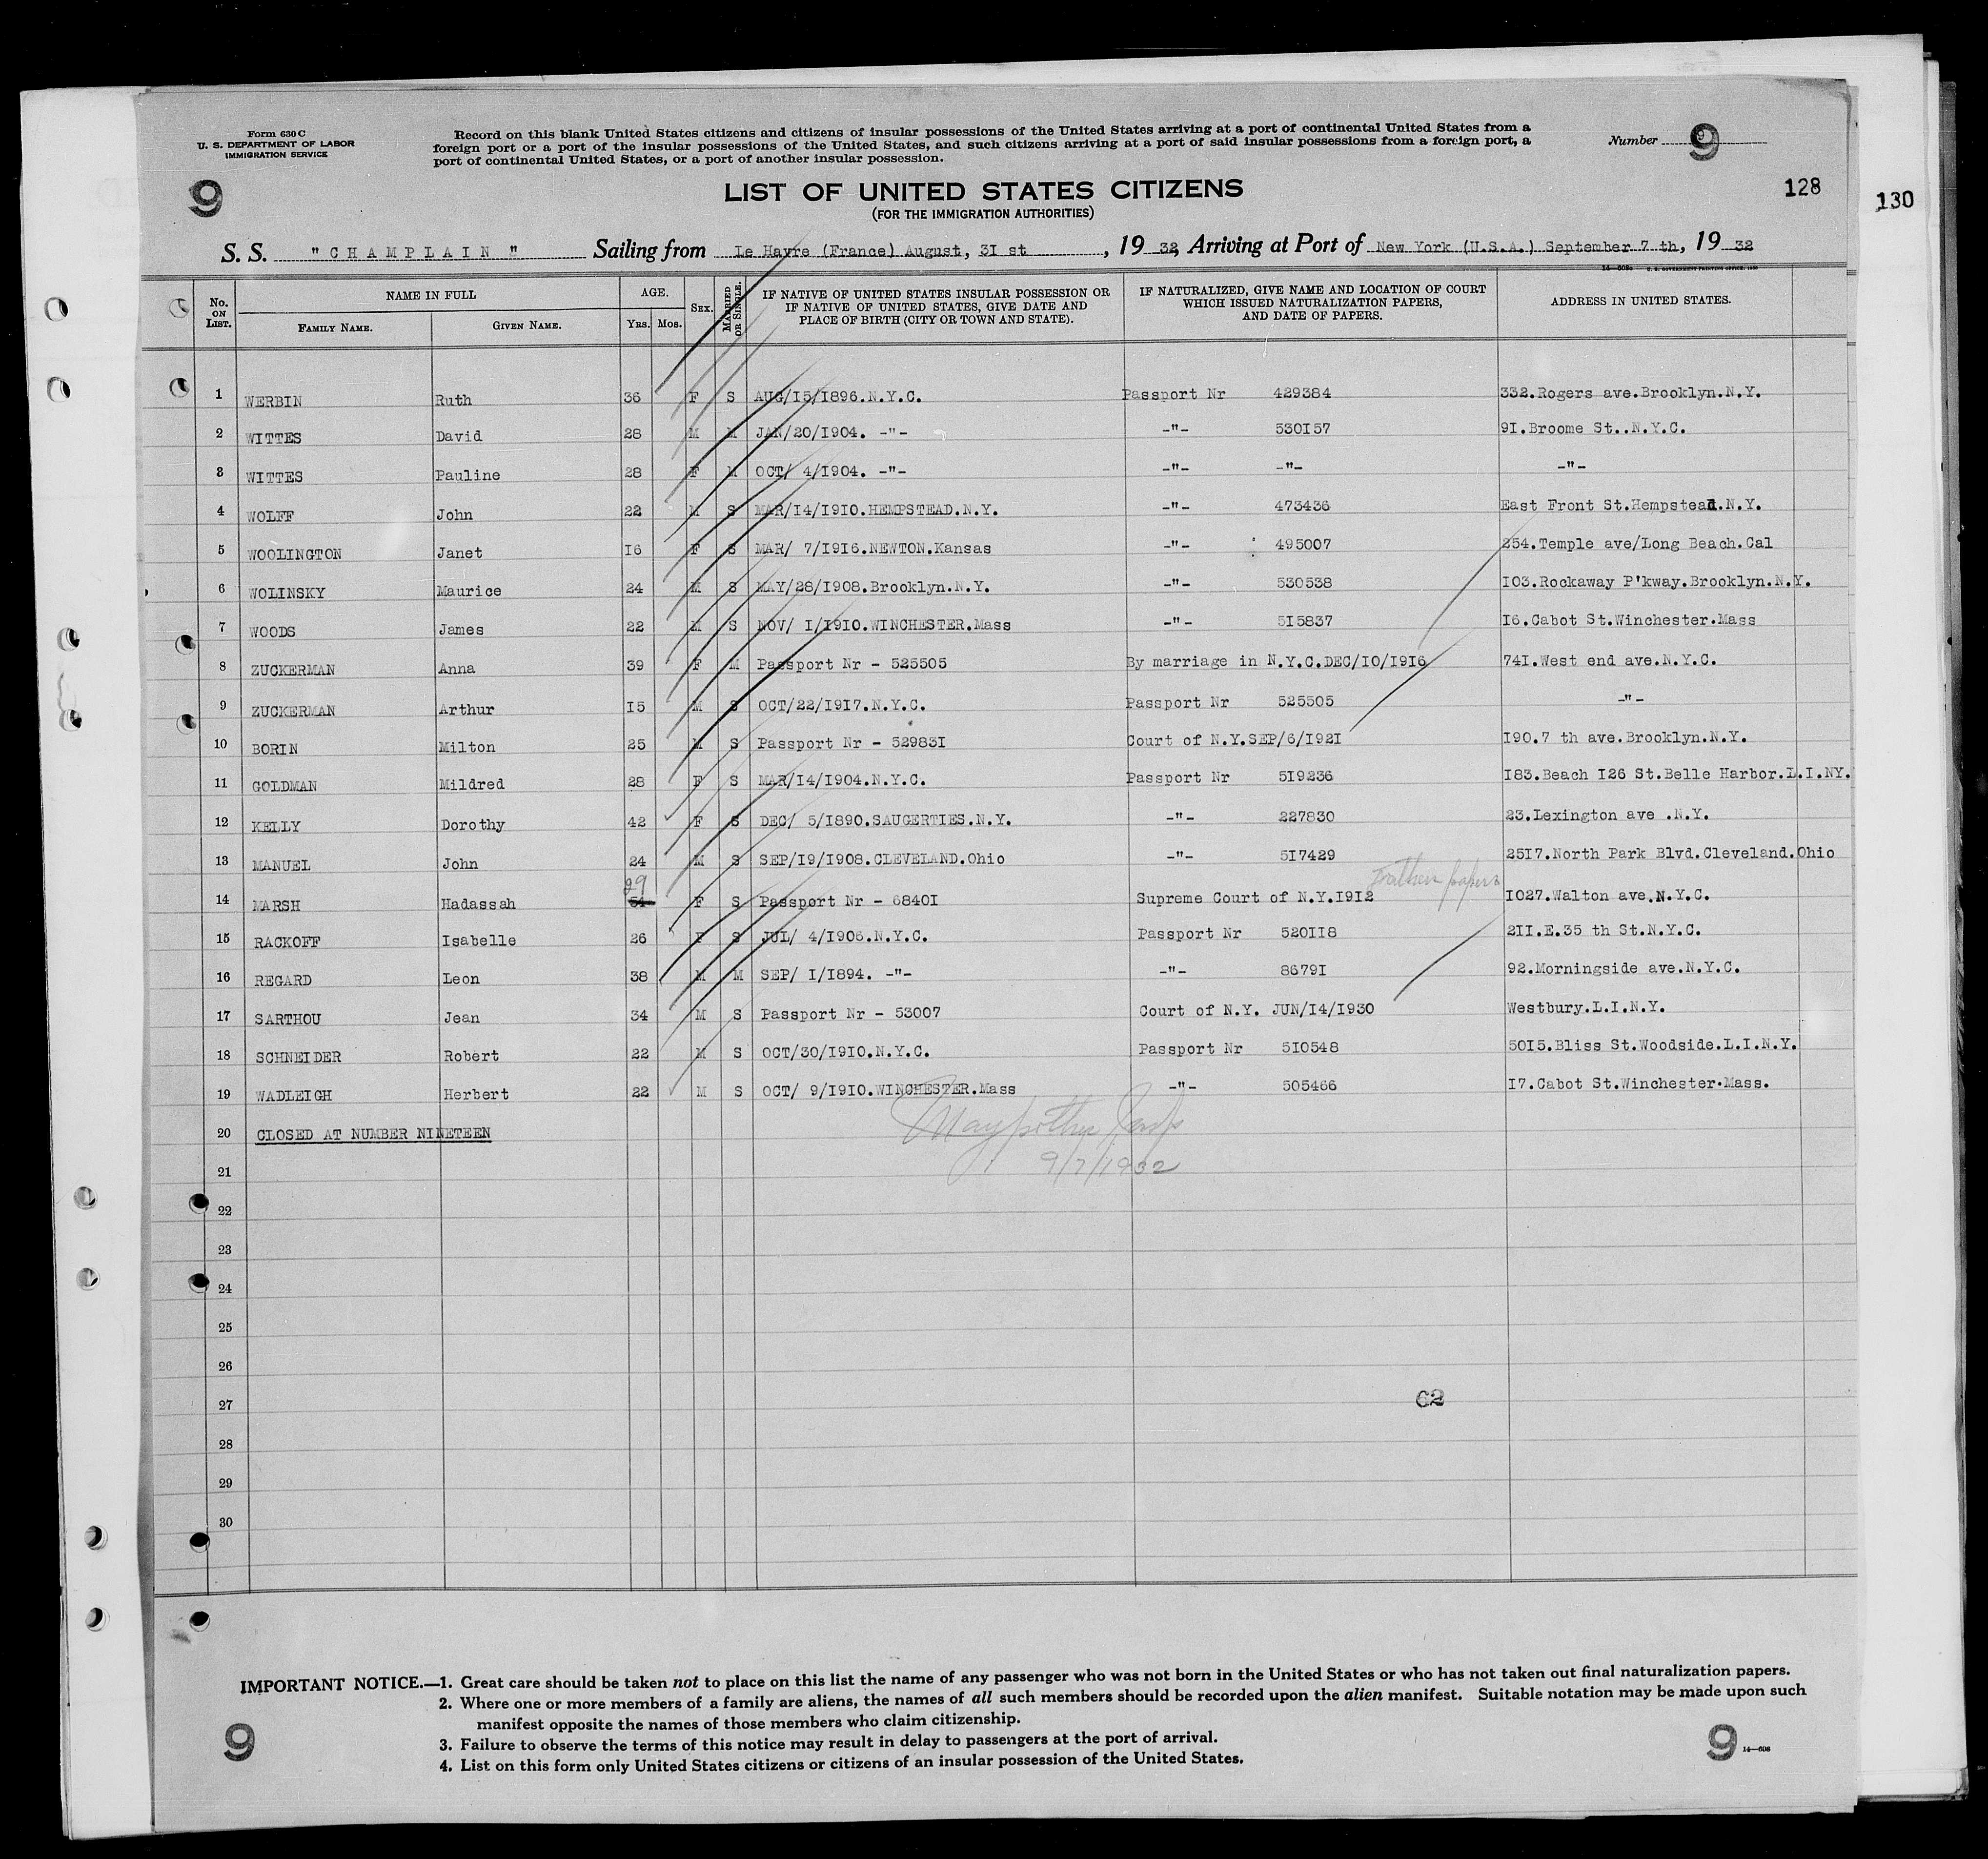 Form 630 C
U. S. DEPARTMENT OF LABOR
IMMIGRATION SERVICE
Record on this blank United States citizens and citizens of insular possessions of the United States arriving at a port of continental United States from a
foreign port or a port of the insular possessions of the United States, and such citizens arriving at a port of said insular possessions from a foreign port, a
port of continental United States, or a port of another insular possession.
Number 9
9
LIST OF UNITED STATES CITIZENS
(FOR THE IMMIGRATION AUTHORITIES)
128
130
S. S. "CHAMPLAIN" Sailing from Le Havre (France) August, 31 st, 19 32, Arriving at Port of New York (U.S.A.) September 7 th, 19 32
No. ON LIST. NAME IN FULL FAMILY NAME. GIVEN NAME. AGE. YRS. MOS. SEX. MARRIED OR SINGLE. IF NATIVE OF UNITED STATES INSULAR POSSESSION OR IF NATIVE OF UNITED STATES, GIVE DATE AND PLACE OF BIRTH (CITY OR TOWN AND STATE). IF NATURALIZED, GIVE NAME AND LOCATION OF COURT WHICH ISSUED NATURALIZATION PAPERS, AND DATE OF PAPERS. ADDRESS IN UNITED STATES.
1 WERBIN Ruth 36 F S AUG/15/1896.N.Y.C. Passport Nr 429384 332.Rogers ave.Brooklyn.N.Y.
2 WITTES David 28 M M JAN/20/1904. -"- -"- 530157 91.Broome St..N.Y.C.
3 WITTES Pauline 28 F M OCT/ 4/1904. -"- -"- -"- -"-
4 WOLFF John 22 M S MAR/14/1910.HEMPSTEAD.N.Y. -"- 473436 East Front St.Hempstead.N.Y.
5 WOOLINGTON Janet 16 F S MAR/ 7/1916.NEWTON.Kansas -"- 495007 254.Temple ave/Long Beach.Cal
6 WOLINSKY Maurice 24 M S MAY/28/1908.Brooklyn.N.Y. -"- 530538 103.Rockaway P'kway.Brooklyn.N.Y.
7 WOODS James 22 M S NOV/ 1/1910.WINCHESTER.Mass -"- 515837 16.Cabot St.Winchester.Mass
8 ZUCKERMAN Anna 39 F M Passport Nr - 525505 By marriage in N.Y.C.DEC/10/1916 741.West end ave.N.Y.C.
9 ZUCKERMAN Arthur 15 M S OCT/22/1917.N.Y.C. Passport Nr 525505 -"-
10 BORIN Milton 25 M S Passport Nr - 529831 Court of N.Y.SEP/6/1921 190.7 th ave.Brooklyn.N.Y.
11 GOLDMAN Mildred 28 F S MAR/14/1904.N.Y.C. Passport Nr 519236 183.Beach 126 St.Belle Harbor.L.I.NY.
12 KELLY Dorothy 42 F S DEC/ 5/1890.SAUGERTIES.N.Y. -"- 227830 23.Lexington ave .N.Y.
13 MANUEL John 24 M S SEP/19/1908.CLEVELAND.Ohio -"- 517429 2517.North Park Blvd.Cleveland.Ohio
14 MARSH Hadassah 29 F S Passport Nr - 68401 Supreme Court of N.Y.1912 Fathers papers 1027.Walton ave.N.Y.C.
15 RACKOFF Isabelle 26 F S JUL/ 4/1906.N.Y.C. Passport Nr 520118 211.E.35 th St.N.Y.C.
16 REGARD Leon 38 M M SEP/ 1/1894. -"- -"- 86791 92.Morningside ave.N.Y.C.
17 SARTHOU Jean 34 M S Passport Nr - 53007 Court of N.Y. JUN/14/1930 Westbury.L.I.N.Y.
18 SCHNEIDER Robert 22 M S OCT/30/1910.N.Y.C. Passport Nr 510548 5015.Bliss St.Woodside.L.I.N.Y.
19 WADLEIGH Herbert 22 M S OCT/ 9/1910.WINCHESTER.Mass -"- 505466 17.Cabot St.Winchester.Mass.
20 CLOSED AT NUMBER NINETEEN
21 9/7/1932
22
23
24
25
26
27 62
28
29
30
IMPORTANT NOTICE.—1. Great care should be taken not to place on this list the name of any passenger who was not born in the United States or who has not taken out final naturalization papers.
2. Where one or more members of a family are aliens, the names of all such members should be recorded upon the alien manifest. Suitable notation may be made upon such
manifest opposite the names of those members who claim citizenship.
3. Failure to observe the terms of this notice may result in delay to passengers at the port of arrival.
4. List on this form only United States citizens or citizens of an insular possession of the United States.
9
9 14—608